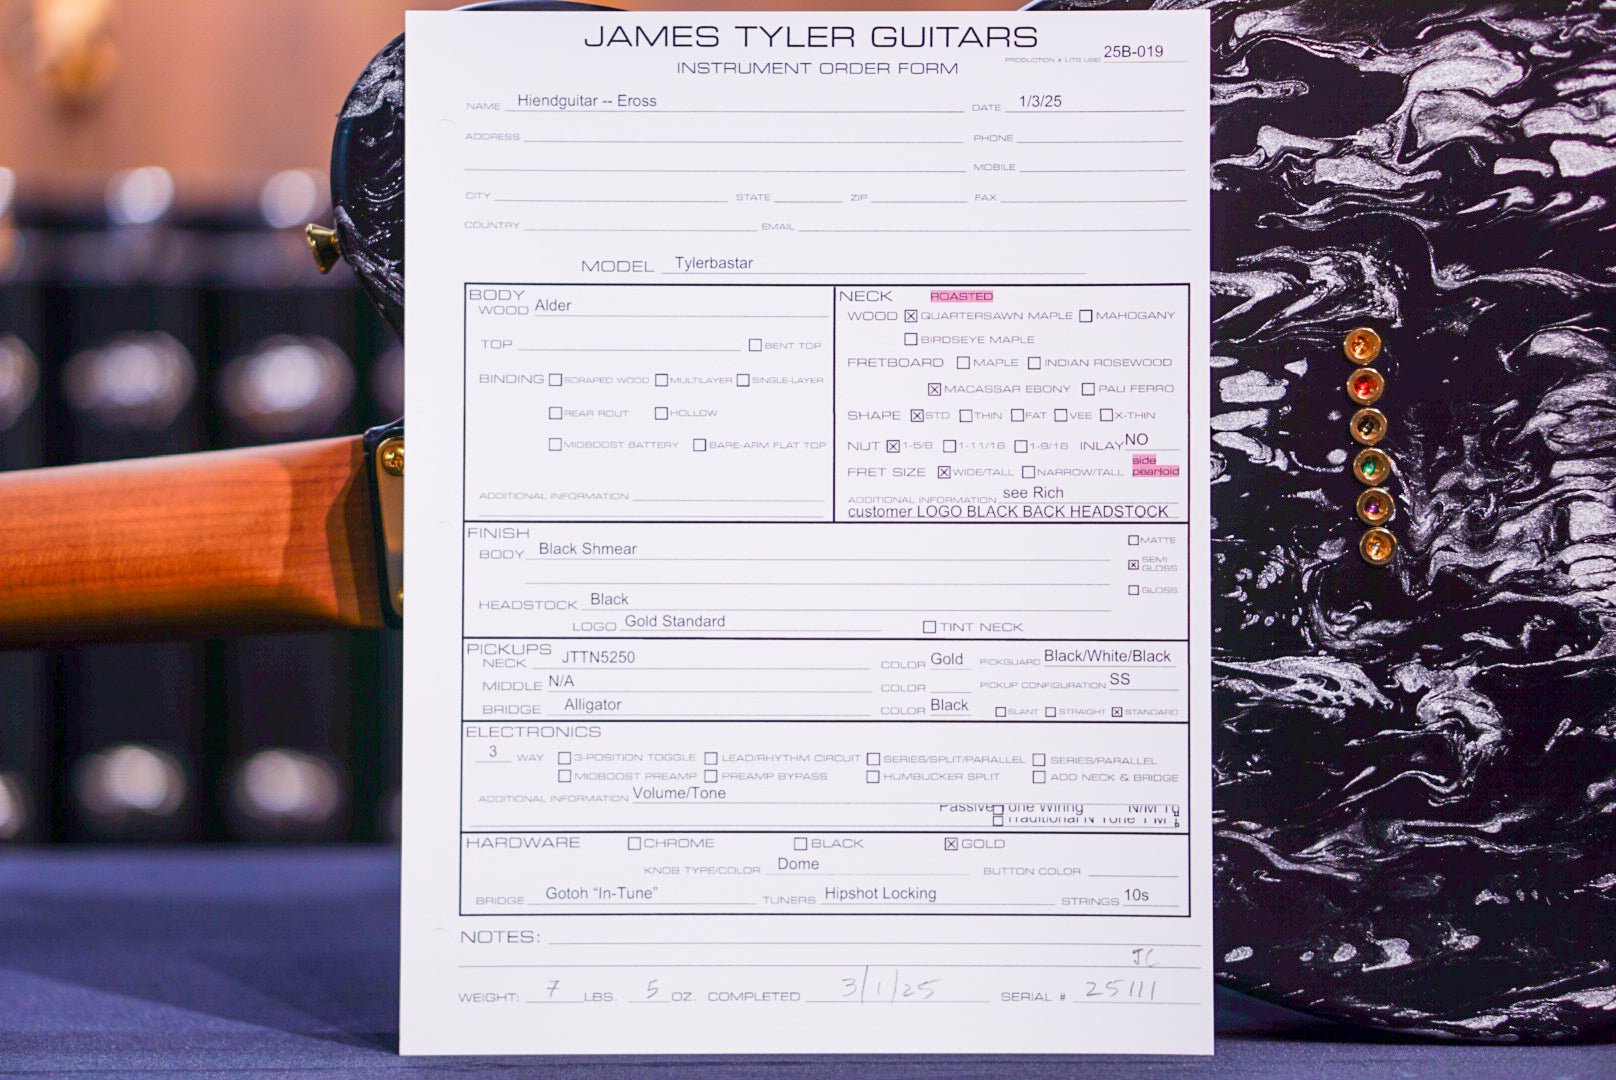 JAMES TYLER GUITARS
INSTRUMENT ORDER FORM
PRODUCTION # (JTG USE) 25B-019
NAME Hiendguitar -- Eross DATE 1/3/25
ADDRESS PHONE
MOBILE
CITY STATE ZIP FAX
COUNTRY EMAIL
MODEL Tylerbastar
BODY
WOOD Alder
TOP BENT TOP
BINDING SCRAPED WOOD MULTILAYER SINGLE-LAYER
REAR ROUT HOLLOW
MIDBOOST BATTERY BARE-ARM FLAT TOP
ADDITIONAL INFORMATION
NECK ROASTED
WOOD ☒ QUARTERSAWN MAPLE ☐ MAHOGANY
☐ BIRDSEYE MAPLE
FRETBOARD ☐ MAPLE ☐ INDIAN ROSEWOOD
☒ MACASSAR EBONY ☐ PAU FERRO
SHAPE ☒ STD ☐ THIN ☐ FAT ☐ VEE ☐ X-THIN
NUT ☒ 1-5/8 ☐ 1-11/16 ☐ 1-9/16 INLAY NO
FRET SIZE ☒ WIDE/TALL ☐ NARROW/TALL side pearloid
ADDITIONAL INFORMATION see Rich
customer LOGO BLACK BACK HEADSTOCK
FINISH
BODY Black Shmear
☐ MATTE
☒ SEMI GLOSS
☐ GLOSS
HEADSTOCK Black
LOGO Gold Standard ☐ TINT NECK
PICKUPS
NECK JTTN5250 COLOR Gold PICKGUARD Black/White/Black
MIDDLE N/A COLOR PICKUP CONFIGURATION SS
BRIDGE Alligator COLOR Black ☐ SLANT ☐ STRAIGHT ☒ STANDARD
ELECTRONICS
3 WAY ☐ 3-POSITION TOGGLE ☐ LEAD/RHYTHM CIRCUIT ☐ SERIES/SPLIT/PARALLEL ☐ SERIES/PARALLEL
☐ MIDBOOST PREAMP ☐ PREAMP BYPASS ☐ HUMBUCKER SPLIT ☐ ADD NECK & BRIDGE
ADDITIONAL INFORMATION Volume/Tone
Passive Tone Wiring
Traditional
HARDWARE ☐ CHROME ☐ BLACK ☒ GOLD
KNOB TYPE/COLOR Dome BUTTON COLOR
BRIDGE Gotoh “In-Tune” TUNERS Hipshot Locking STRINGS 10s
NOTES:
JC
WEIGHT: 7 LBS. 5 OZ. COMPLETED 3/1/25 SERIAL # 25111